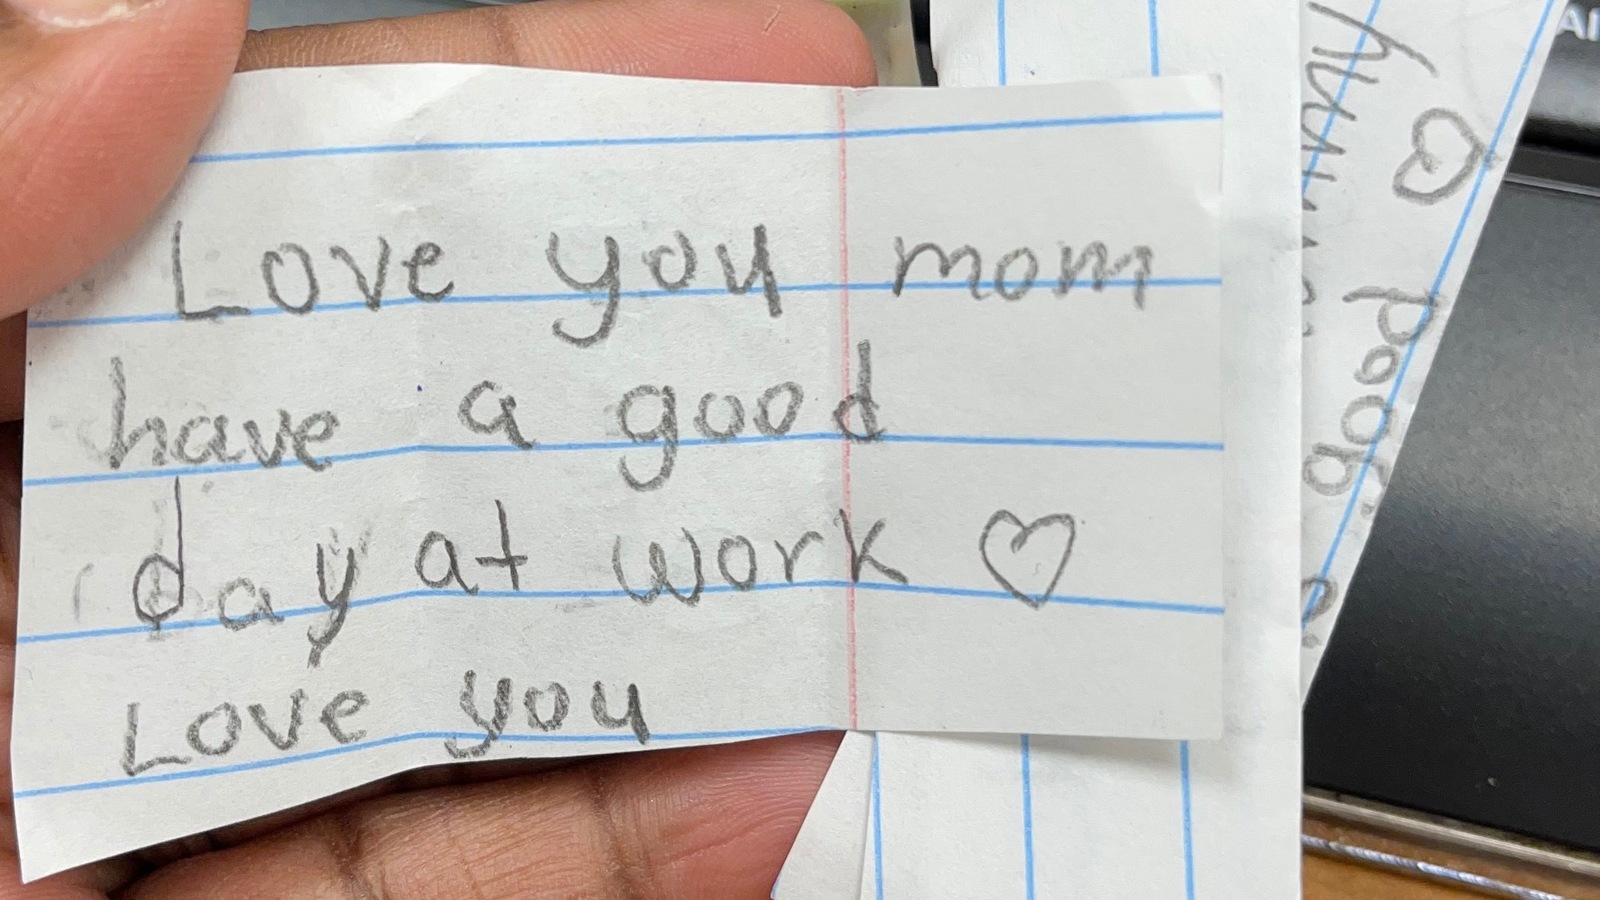 Love you mom
have a good
day at work ♡
Love you
♡ good
AI